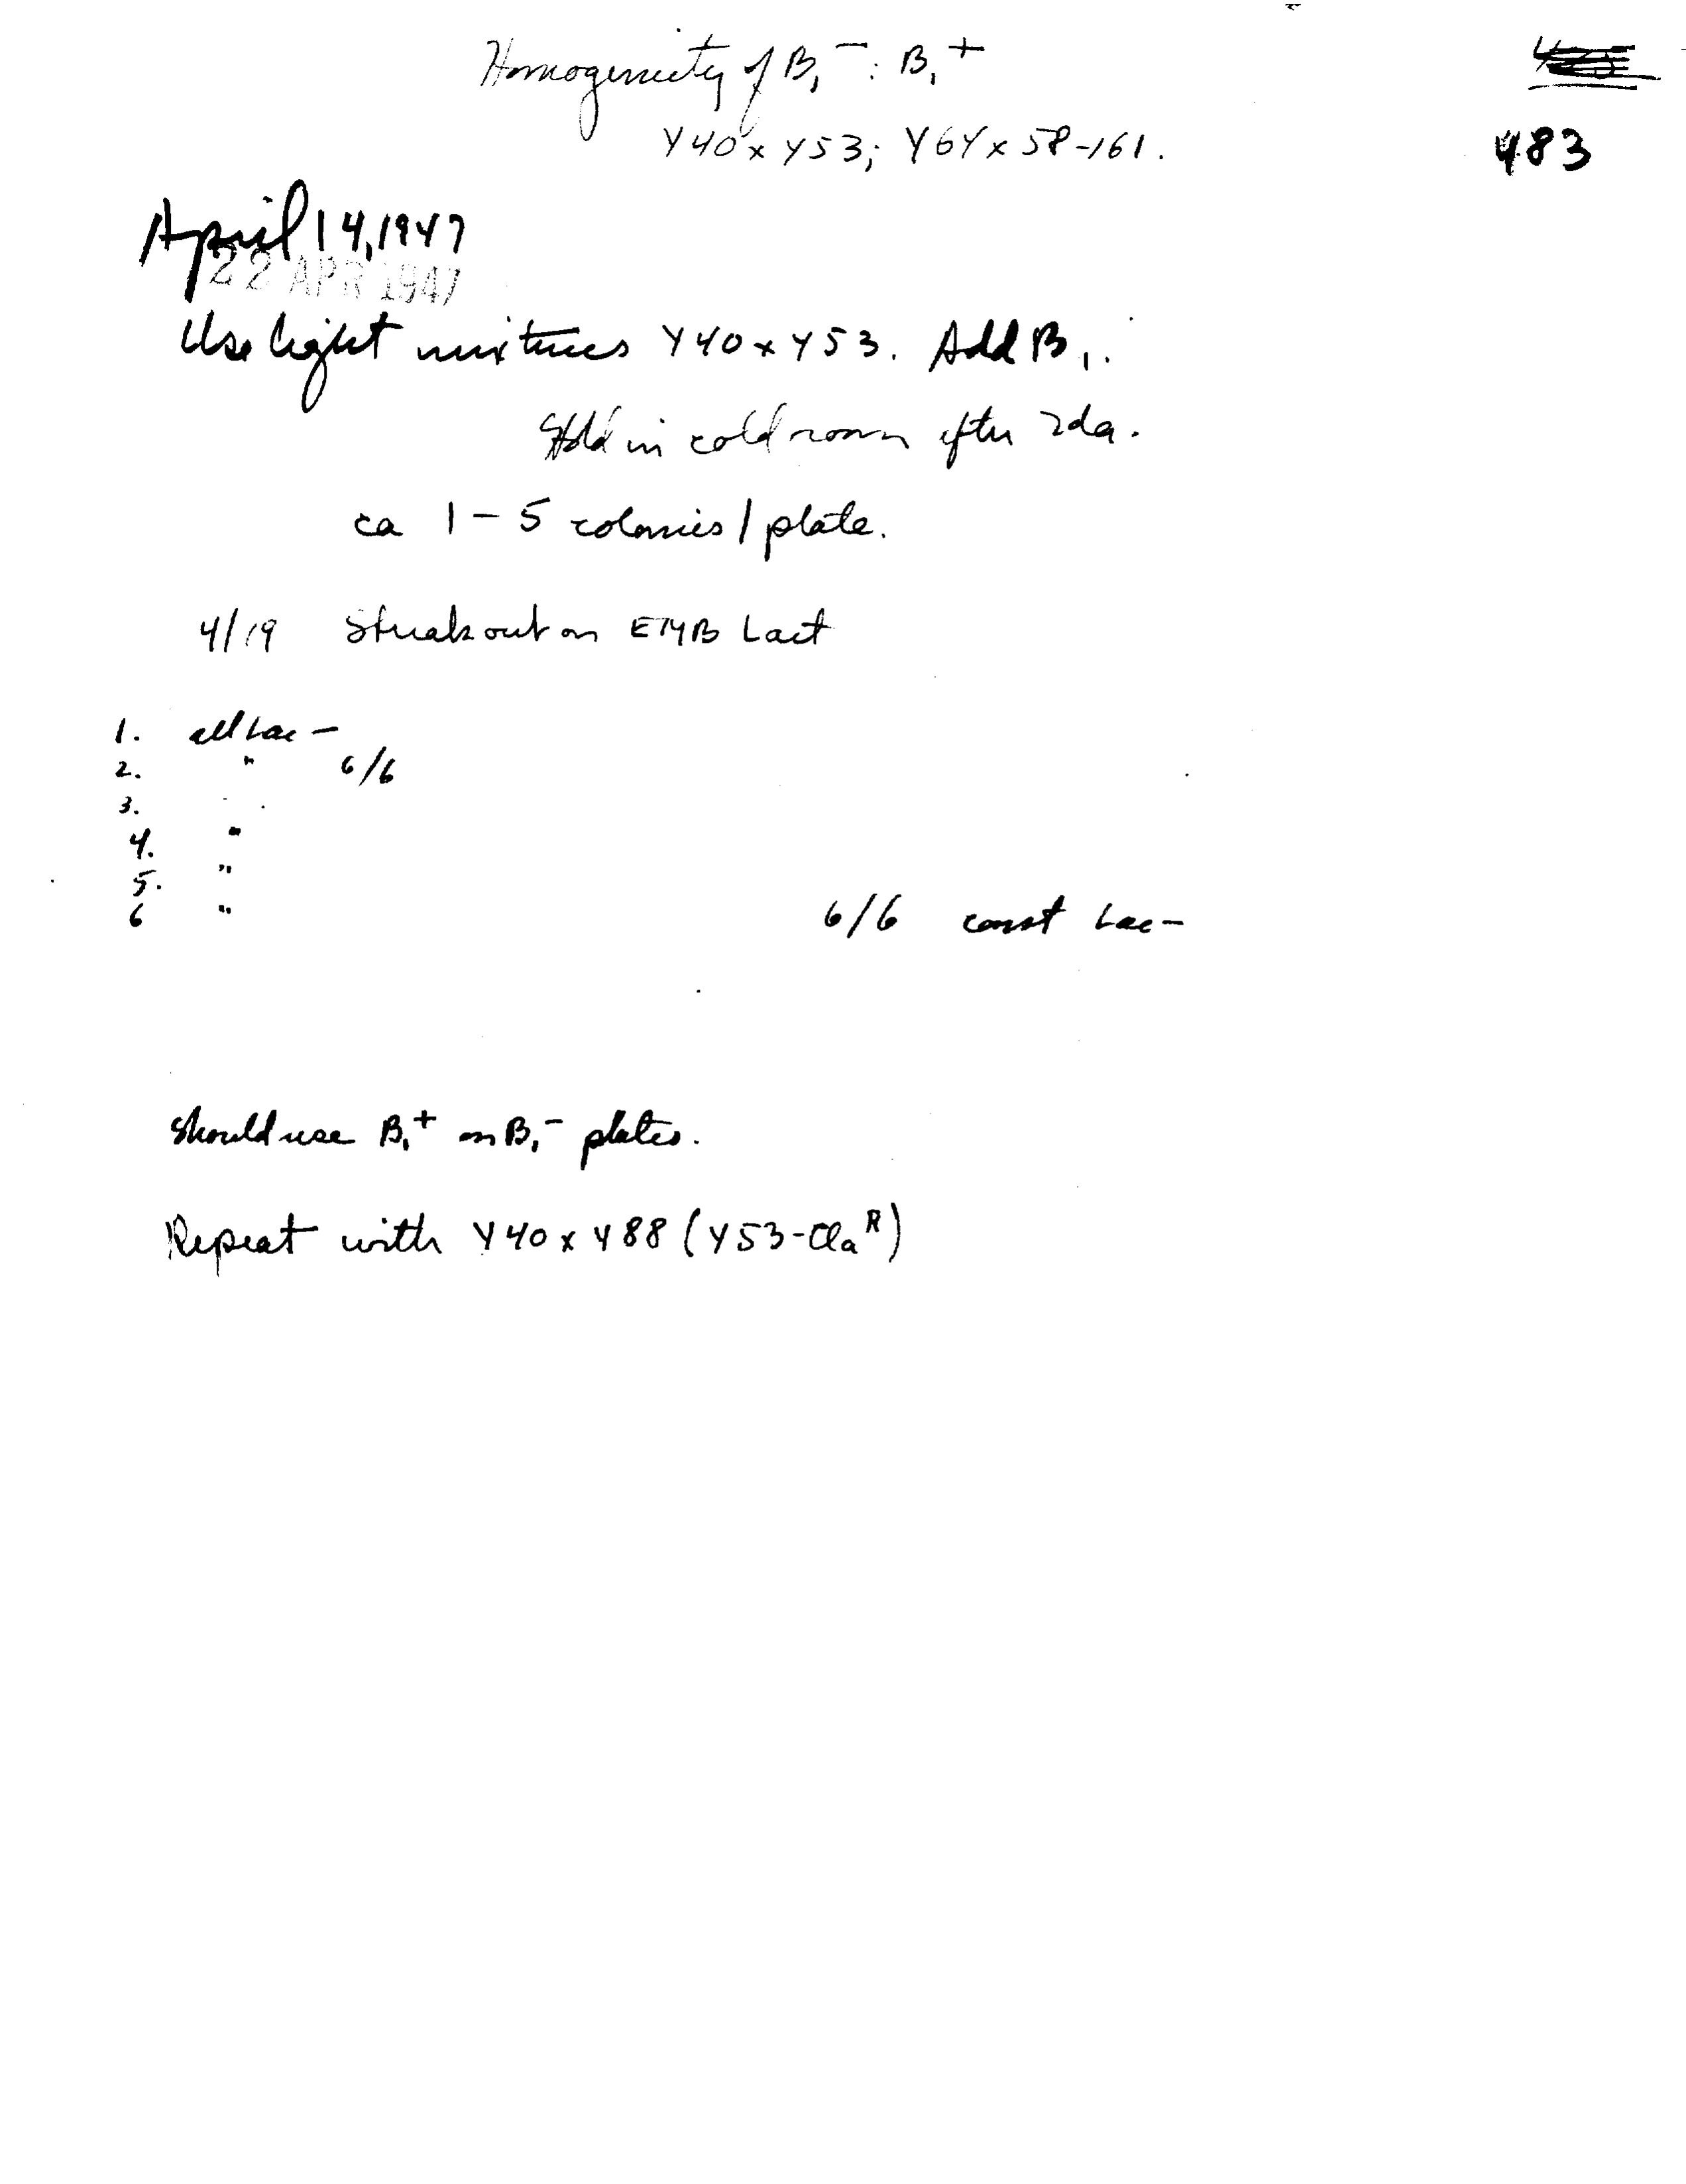 Homogeneity of B₁⁻ : B₁⁺
Y40 x Y53; Y64 x 58-161.
483
April 14, 1947
22 APR 1947
Use light mixtures Y40 x Y53. Add B₁.
Hold in cold room after 2da.
ca 1-5 colonies / plate.
4/19 Streak out on EMB Lact
1. all Lac -
2. " 6/6
3. "
4. "
5. "
6 " 6/6 const Lac-
Should use B₁⁺ on B₁⁻ plates.
Repeat with Y40 x Y88 (Y53-